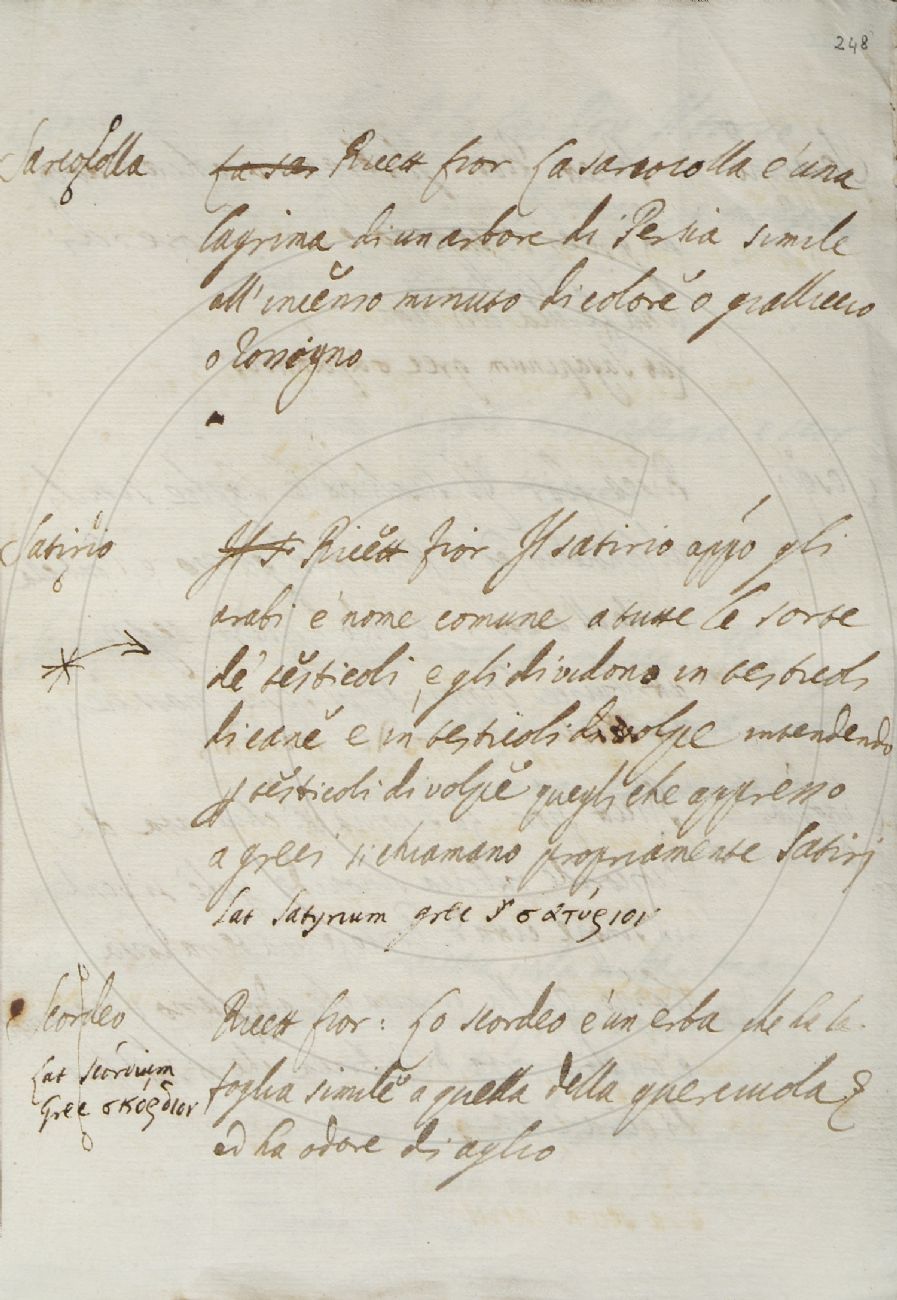 248
Sarcocolla
La sar Ricett fior La sarcocolla è una
lagrima di un arbore di Persia simile
all'incenso minuto di colore o gialliccio
o rossigno
Satirio
Il s Ricett fior Il satirio appo gli
arabi è nome comune a tutte le sorte
de' testicoli, e gli dividono in testicoli
di cane e in testicoli di volpe intendendo
p testicoli di volpe quegli che appresso
a greci si chiamano propriamente Satirj
Lat Satyrium grec σατύριον
Scordeo
Lat scordium
Grec σκόρδιον
Ricett fior: Lo scordeo è un erba che ha la
foglia simile a quella della querciuola
ed ha odore di aglio